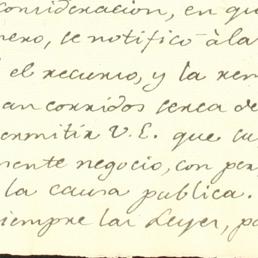 consideracion, en qu
nero, se notificó à la
el recurso, y la rem
an corridos cerca de
ermitir V. E. que cu
mente negocio, con per
la causa publica.
siempre las Leyes, pa